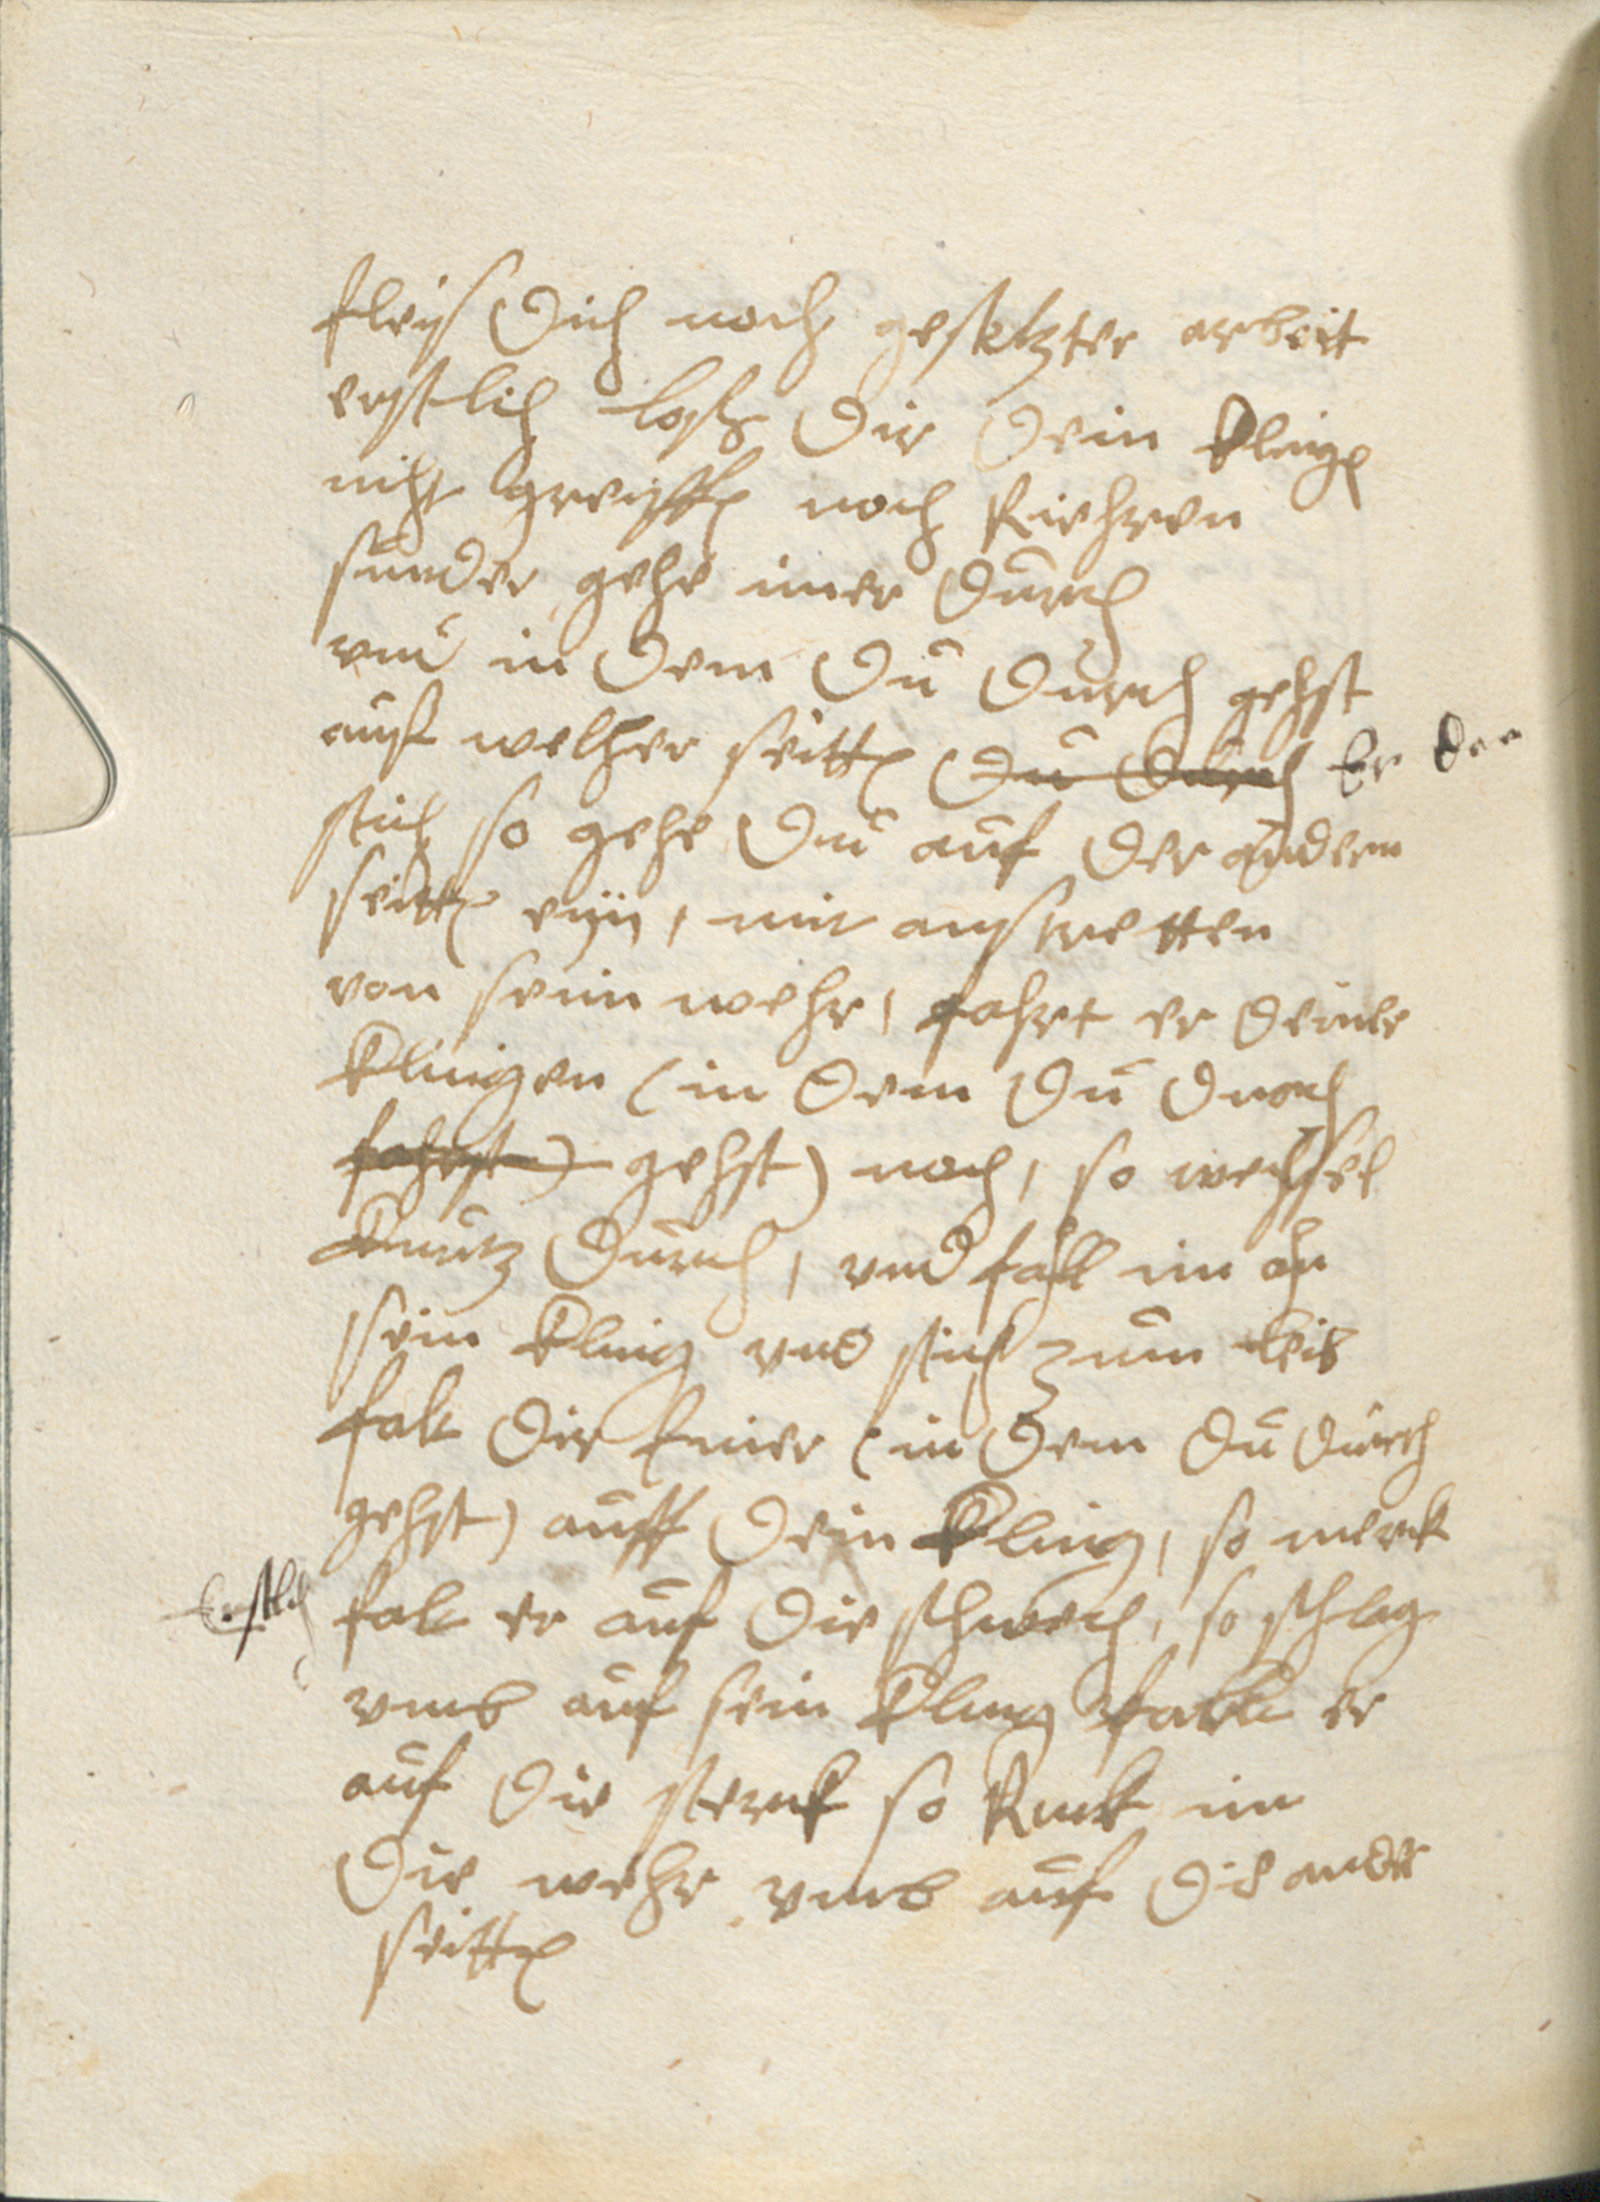 fleis dich nach gesetzter arbeit
erstlich lasz dir dein Klingen
nicht greiffen noch Riehren
sunder gehe imer durch
vnd in dem du durch gehst
auf welcher seitten du durch Er den
stich so gehe du auf der andern
seitten eyn, mit austretten
von seim wehr, fahrt er deiner
Klingen (in dem du durch
fahrst) gehst) nach, so wechsel
Kurtz durch, vnd fall im an
sein Kling vnd stich zum leib
falt dir Einer (in dem du durch
gehst) auff dein Kling, so merck
Erstlich falt er auf die schwech, so schlag
vmb auf sein Kling falt er
auf die sterck so Ruck im
die wehr vmb auf die ander
seitten